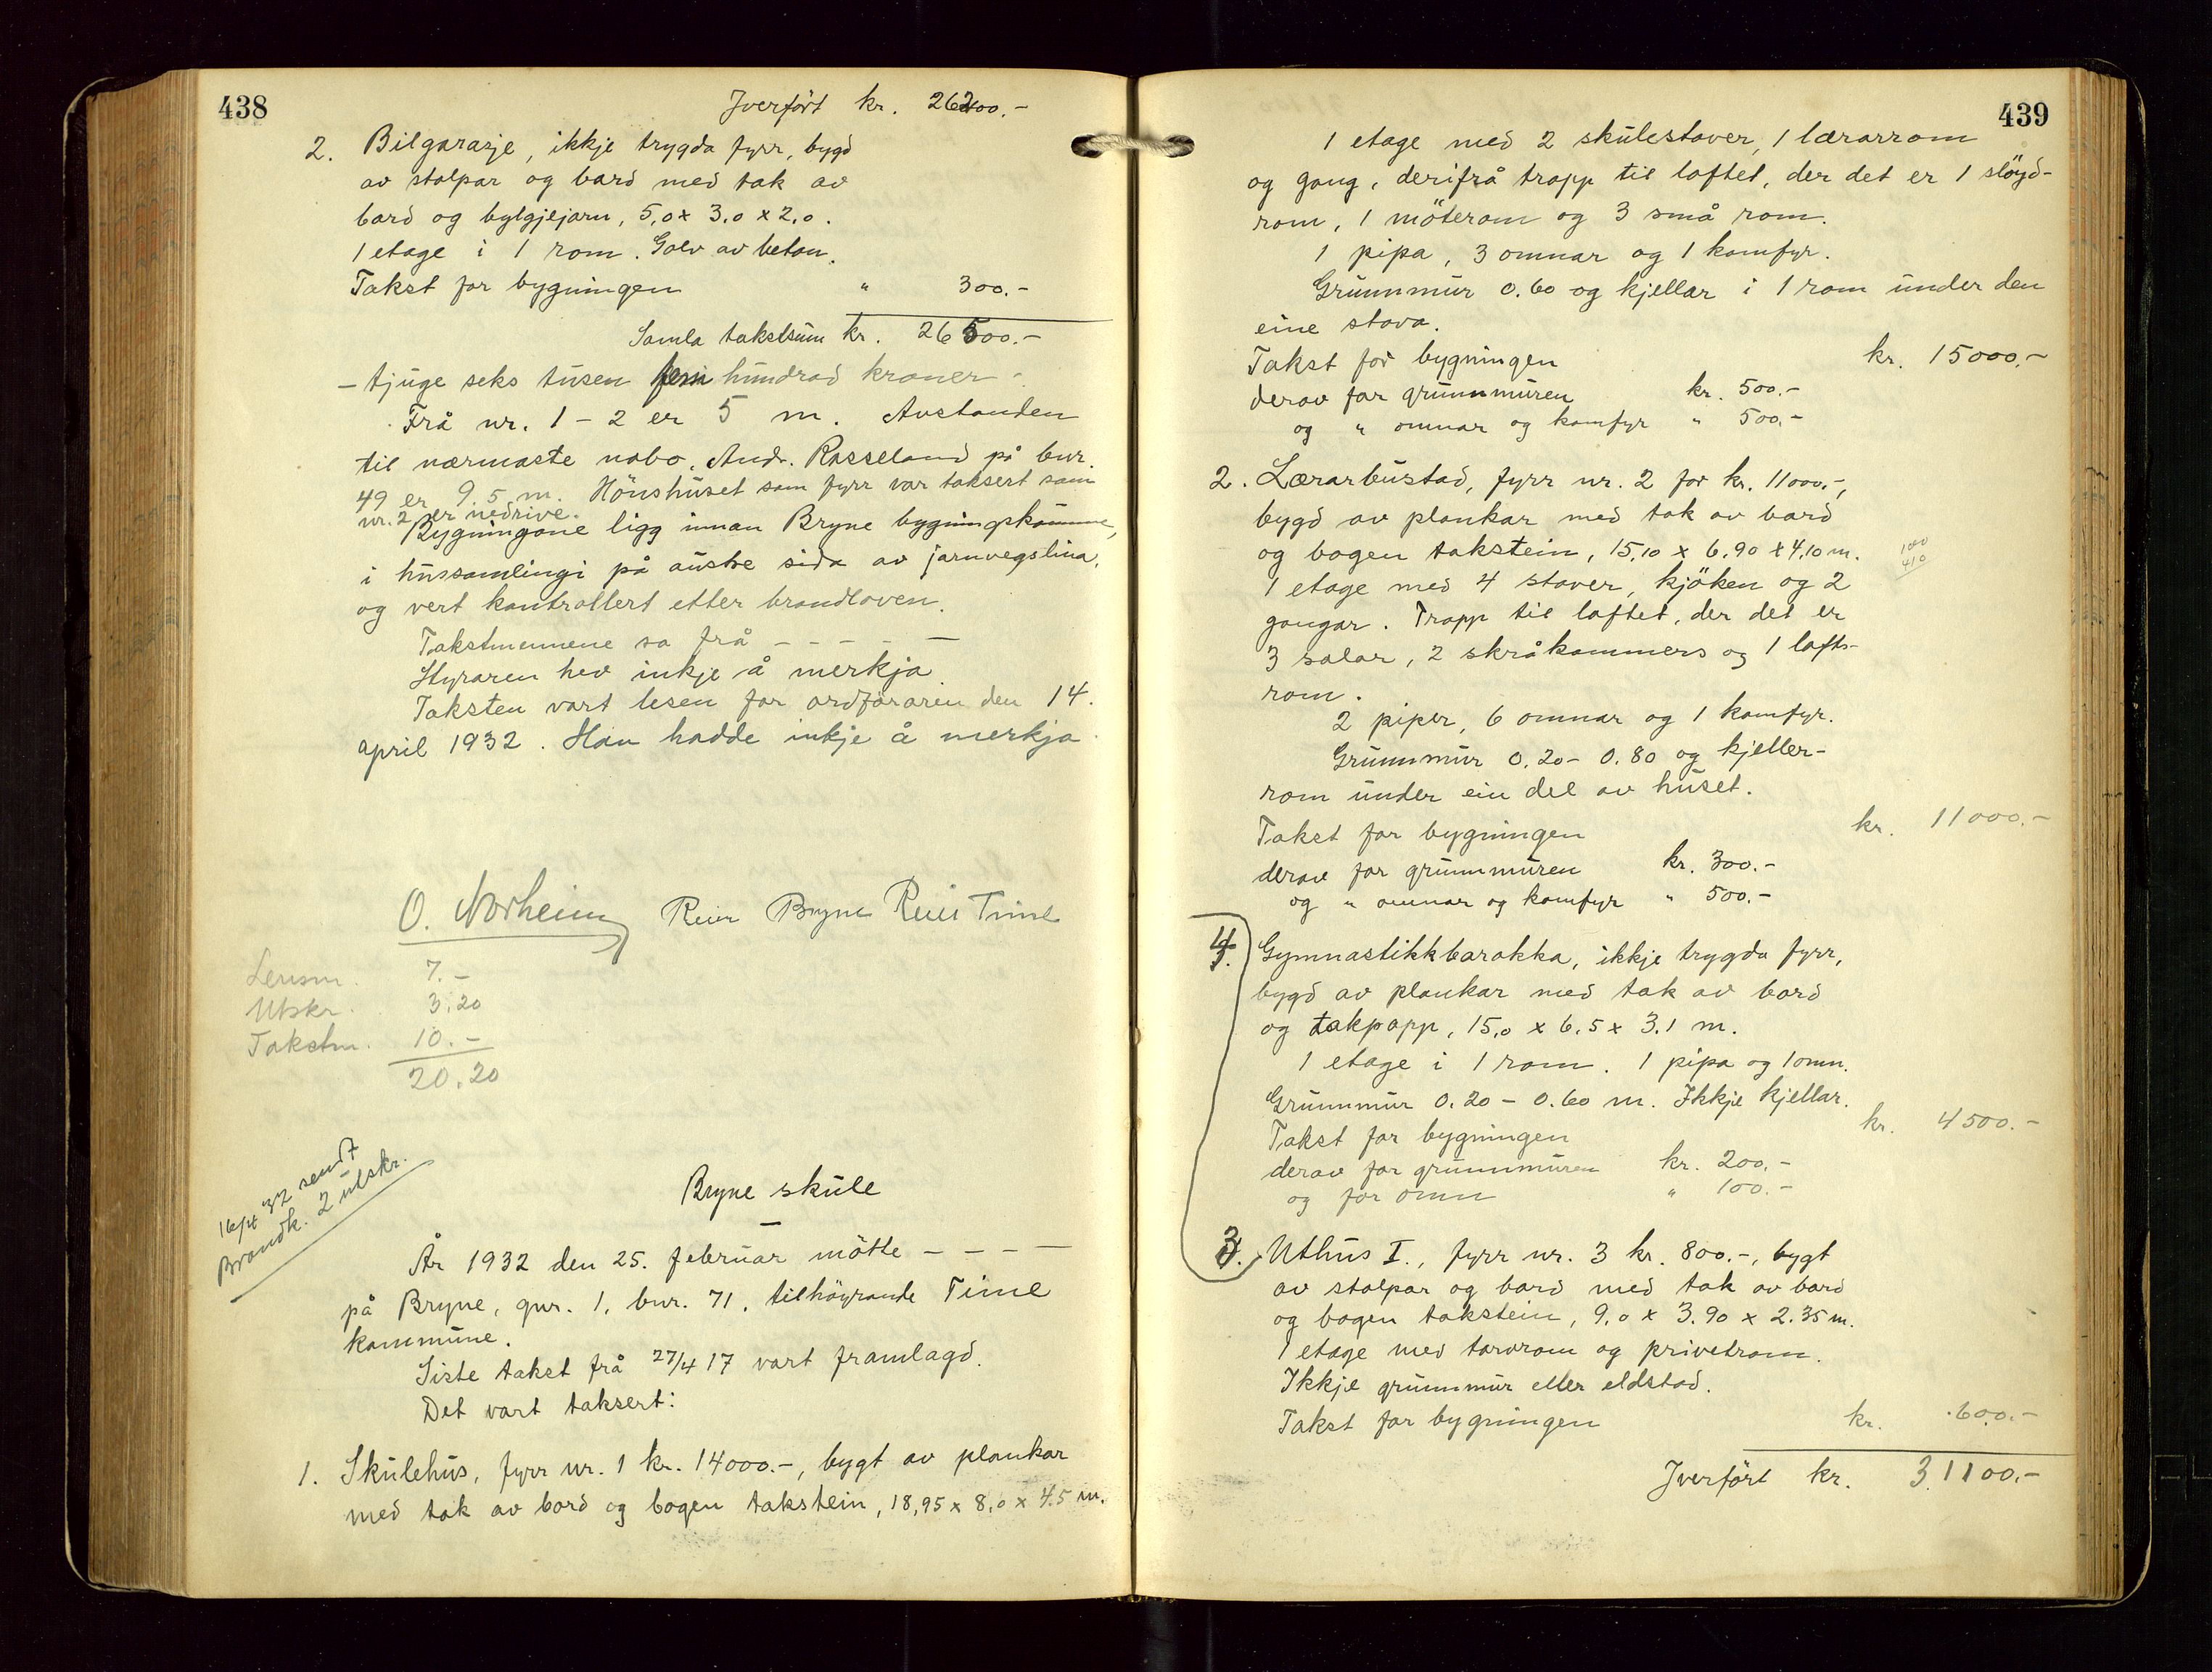 438
Iverført kr. 26200.-
2. Bilgarasje, ikkje trygda fyrr, bygd
av stolpar og bord med tak av
bord og bylgjejarn, 5,0 x 3.0 x 2.0.
1 etage i 1 rom. Golv av beton.
Takst for bygningen " 300.-
Samla takstsum kr. 26500.-
- tjuge seks tusen fem hundrad kroner -
Frå nr. 1 - 2 er 5 m. Avstanden
til nærmaste nabo, Andr. Rosseland på bnr.
49 er 9.5 m. Hönshuset som fyrr var taksert som
nr. 2 er nedrive.
Bygningane ligg innan Bryne bygningskommune,
i hussamlingi på austre sida av jarnvegslina,
og vert kontrollert etter brandloven.
Takstmennene sa frå - - - - -
Styraren hev inkje å merkja.
Taksten vart lesen for ordføraren den 14.
april 1932. Han hadde inkje å merkja.
O. Norheim Reier Bryne Reier Time
Lensm. 7.-
Utskr. 3.20
Takstm. 10.-
20.20
16/4 32 sendt
Brandk. 2 utskr.
Bryne skule
År 1932 den 25. februar mötte - - - -
på Bryne, gnr. 1, bnr. 71, tilhöyrande Time
kommune.
Siste takst frå 27/4 17 vart framlagd.
Det vart taksert:
1. Skulehus, fyrr nr. 1 kr. 14000.-, bygt av plankar
med tak av bord og bogen takstein, 18,95 x 8,0 x 4.5 m.
439
1 etage med 2 skulestover, 1 lærarrom
og gang, derifrå trapp til loftet, der det er 1 slöyd-
rom, 1 möterom og 3 små rom.
1 pipa, 3 omnar og 1 komfyr.
Grunnmur 0.60 og kjellar i 1 rom under den
eine stova.
Takst for bygningen kr. 15000.-
derav for grunnmuren kr. 500.-
og " omnar og komfyr " 500.-
2. Lærarbustad, fyrr nr. 2 for kr. 11000.-,
bygd av plankar med tak av bord
og bogen takstein, 15,10 x 6.90 x 4.10 m.
1 etage med 4 stover, kjöken og 2
gangar. Trapp til loftet, der det er
3 salar, 2 skråkammers og 1 lofts-
rom.
2 piper, 6 omnar og 1 komfyr.
Grunnmur 0.20 - 0.80 og kjeller-
rom under ein del av huset.
Takst for bygningen kr. 11000.-
derav for grunnmuren kr. 300.-
og " omnar og komfyr " 500.-
4. Gymnastikkbarakka, ikkje trygda fyrr,
bygd av plankar med tak av bord
og takpapp, 15,0 x 6.5 x 3.1 m.
1 etage i 1 rom. 1 pipa og 1 omn.
Grunnmur 0.20 - 0.60 m. Ikkje kjellar.
Takst for bygningen kr. 4500.-
derav for grunnmuren kr. 200.-
og for omn " 100.-
3. Uthus I., fyrr nr. 3 kr. 800.-, bygt
av stolpar og bord med tak av bord
og bogen takstein, 9,0 x 3.90 x 2.35 m.
1 etage med torvrom og privetrom.
Ikkje grunnmur eller eldstad.
Takst for bygningen kr. 600.-
Iverført kr. 31100.-